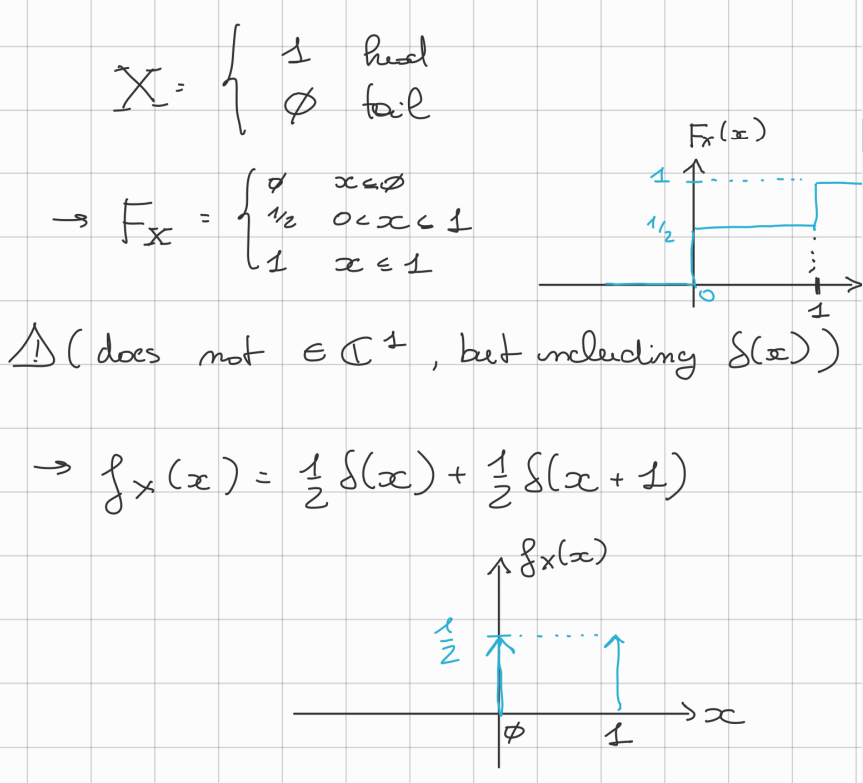 X = { 1 head
∅ tail
F_X(x)
1
1/2
0
1
→ F_X = { ∅ x ≤ ∅
1/2 0 < x ≤ 1
1 x ≤ 1
⚠ ( does not ∈ ℂ¹ , but including δ(x) )
→ f_X(x) = 1/2 δ(x) + 1/2 δ(x + 1)
f_X(x)
1/2
x
∅ 1